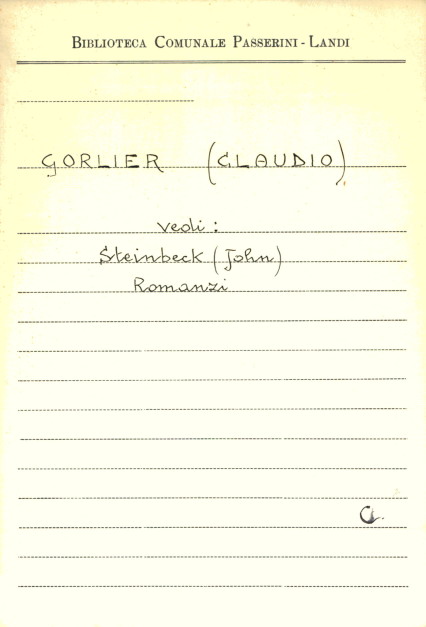 BIBLIOTECA COMUNALE PASSERINI - LANDI
GORLIER (CLAUDIO)
vedi:
Steinbeck (John)
Romanzi